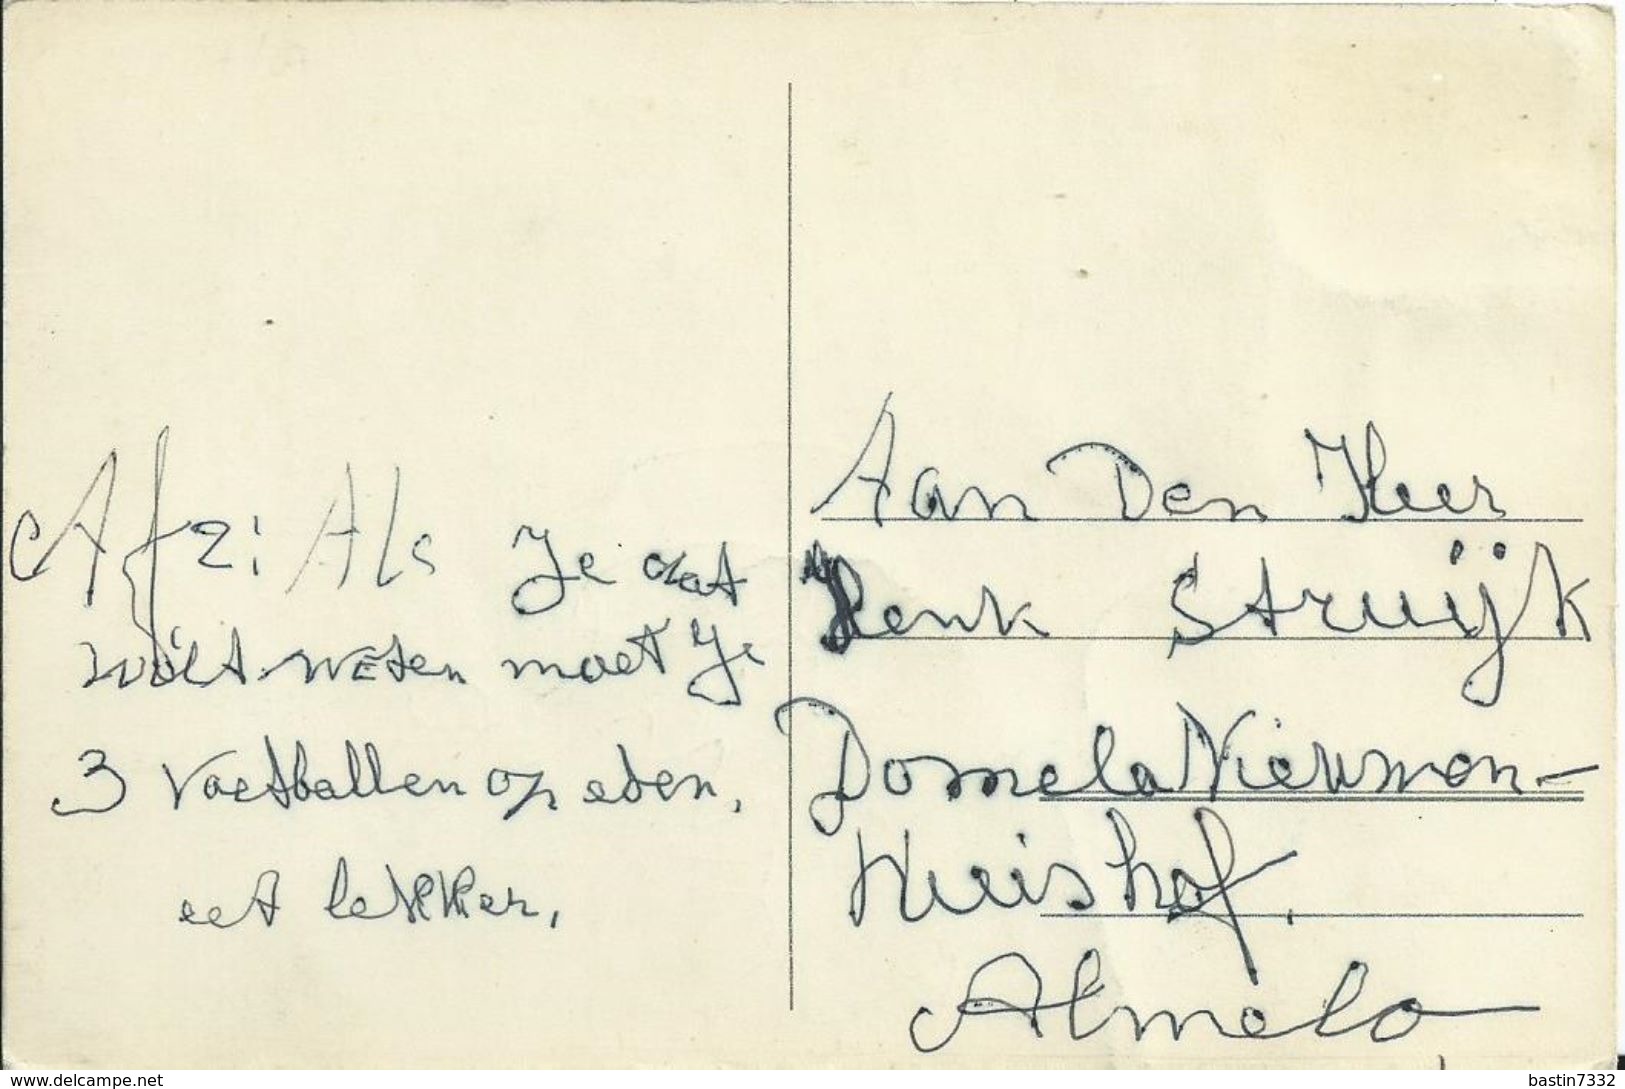 Afz: Als Je dat
wilt weten moet Je
3 voetballen op eten,
eet lekker,
Aan Den Heer
Henk Struijk
Domela Nieuwen-
Huishof.
Almelo
www.delcampe.net
bastin7332